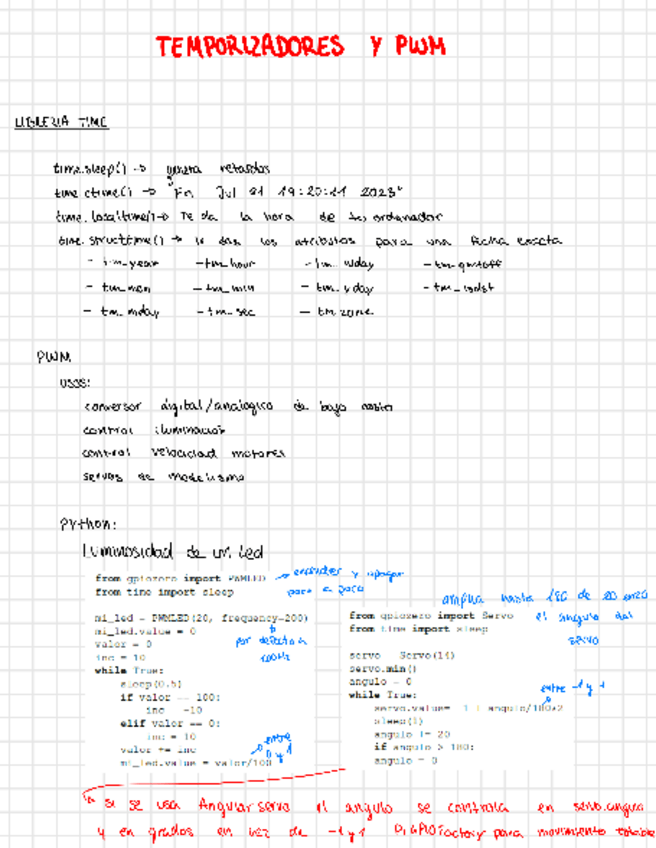 TEMPORIZADORES Y PWM
LIBRERIA TIME
time.sleep() -> genera retardos
time.ctime() -> Fri Jul 21 19:20:21 2023"
time.localtime() -> Te da la hora de tu ordenador
time.structtime() -> le das los atributos para una fecha exacta
- tm_year - tm_hour - tm_wday - tm_gmtoff
- tm_mon - tm_min - tm_yday - tm_isdst
- tm_mday - tm_sec - tm zone
PWM
usos:
conversor digital/analogico de bajo
control iluminacion
control velocidad motores
servos de modelismo
Python:
Luminosidad de un led
from gpiozero import PWMLED -> encender y apagar
from time import sleep poco a poco
mi_led = PWMLED(20, frequency=200)
por defecto a 100Hz
mi_led.value = 0
valor = 0
inc = 10
while True:
sleep(0.5)
if valor == 100:
inc = -10
elif valor == 0:
inc = 10
valor += inc
mi_led.value = valor/100
entre 0 y 1
amplia hasta 180 de 20 en 20
el angulo del servo
from gpiozero import Servo
from time import sleep
servo = Servo(14)
servo.min()
angulo = 0
while True:
servo.value= -1 + angulo/180*2
entre -1 y 1
sleep(1)
angulo += 20
if angulo > 180:
angulo = 0
si se usa Angular servo el angulo se controla en servo.angulo
y en grados en vez de -1 y 1 PiGPIOFactory para movimiento